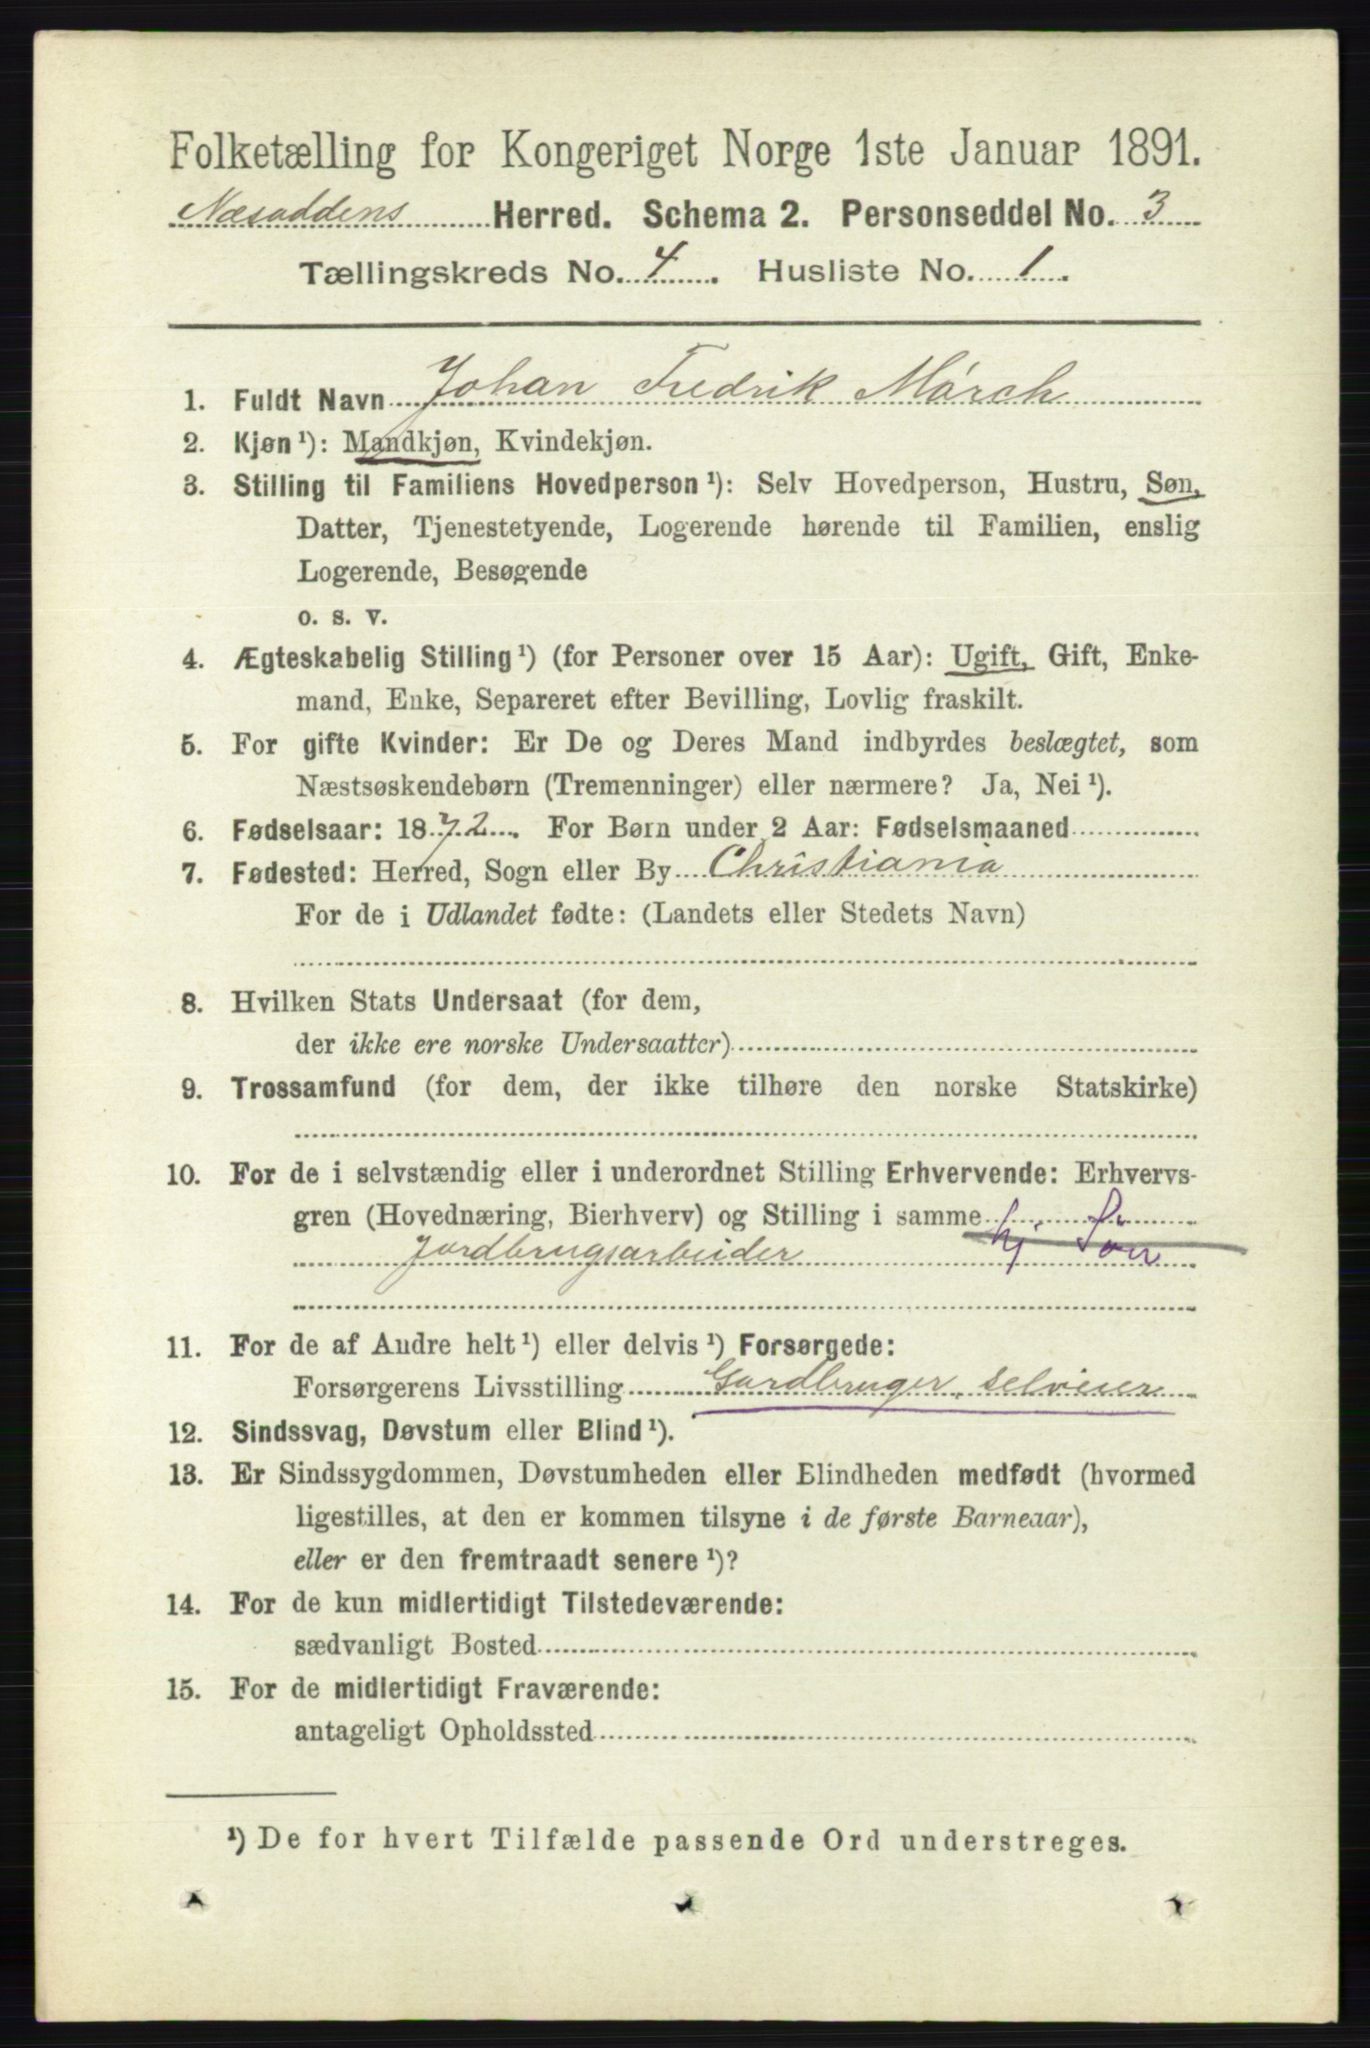 Folketælling for Kongeriget Norge 1ste Januar 1891.
Næsoddens Herred. Schema 2. Personseddel No. 3
Tællingskreds No. 4. Husliste No. 1.
1. Fuldt Navn Johan Fredrik Mørch
2. Kjøn¹): Mandkjøn, Kvindekjøn.
3. Stilling til Familiens Hovedperson¹): Selv Hovedperson, Hustru, Søn,
Datter, Tjenestetyende, Logerende hørende til Familien, enslig
Logerende, Besøgende
o. s. v.
4. Ægteskabelig Stilling¹) (for Personer over 15 Aar): Ugift, Gift, Enke-
mand, Enke, Separeret efter Bevilling, Lovlig fraskilt.
5. For gifte Kvinder: Er De og Deres Mand indbyrdes beslægtet, som
Næstsøskendebørn (Tremenninger) eller nærmere? Ja, Nei¹).
6. Fødselsaar: 1872. For Børn under 2 Aar: Fødselsmaaned
7. Fødested: Herred, Sogn eller By Christiania
For de i Udlandet fødte: (Landets eller Stedets Navn)
8. Hvilken Stats Undersaat (for dem,
der ikke ere norske Undersaatter)
9. Trossamfund (for dem, der ikke tilhøre den norske Statskirke)
10. For de i selvstændig eller i underordnet Stilling Erhvervende: Erhvervs-
gren (Hovednæring, Bierhverv) og Stilling i samme
Jordbrugsarbeider hj. Søn
11. For de af Andre helt¹) eller delvis¹) Forsørgede:
Forsørgerens Livsstilling Gardbruger, selveier
12. Sindssvag, Døvstum eller Blind¹).
13. Er Sindssygdommen, Døvstumheden eller Blindheden medfødt (hvormed
ligestilles, at den er kommen tilsyne i de første Barneaar),
eller er den fremtraadt senere¹)?
14. For de kun midlertidigt Tilstedeværende:
sædvanligt Bosted
15. For de midlertidigt Fraværende:
antageligt Opholdssted
¹) De for hvert Tilfælde passende Ord understreges.